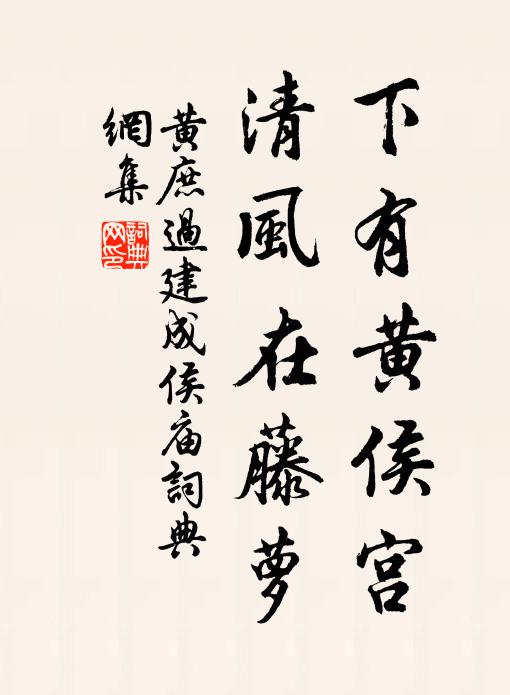 下有黄侯宫
清風在藤萝
黄庶過建成侯庙詞典
網集
詞典
网印